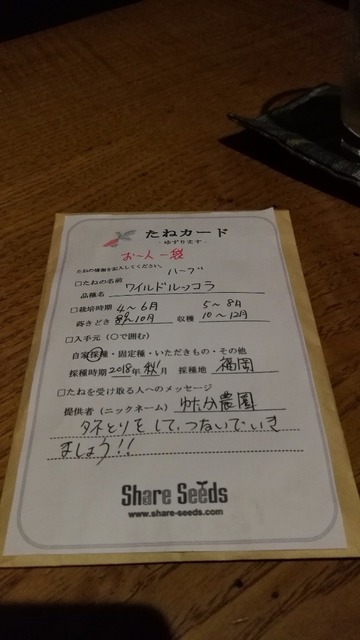 たねカード
-ゆずります-
お一人一袋
たねの情報を記入してください。
ハーブ
□たねの名前
品種名 ワイルドルッコラ
□栽培時期 4~6月 5~8月
蒔きどき 10月 収穫 10~12月
□入手元(○で囲む)
自家採種・固定種・いただきもの・その他
採種時期 2018年 秋月 採種地 福岡
□たねを受け取る人へのメッセージ
提供者(ニックネーム) 農園
タネとりをして、つないでいき
ましょう!!
Share Seeds
www.share-seeds.com